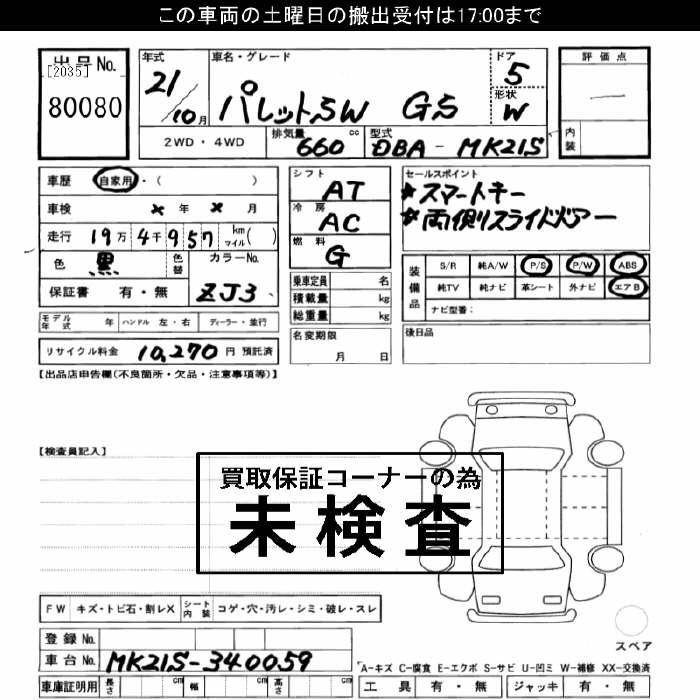 この車両の土曜日の搬出受付は17:00まで
出品No.
[2035]
80080
年式
21/10月
車名・グレード
パレットSW GS
ドア
5
形状
W
評価点
内装
2WD・4WD
排気量
660 cc
型式
DBA-MK21S
車歴 自家用・( )
車検 × 年 × 月
走行 19万4千957 km マイル( )
色 黒 色替 カラーNo.
保証書 有・無 ZJ3
シフト
AT
冷房
AC
燃料
G
乗車定員 名
積載量 kg
総重量 kg
セールスポイント
*スマートキー
*両側スライドドアー
装備品
S/R 純A/W P/S P/W ABS
純TV 純ナビ 革シート 外ナビ エアB
ナビ型番:
モデル年式 年 ハンドル 左・右 ディーラー・並行
リサイクル料金 10,270 円 預託済
名変期限
月 日
後日品
【出品店申告欄(不良箇所・欠品・注意事項等)】
【検査員記入】
買取保証コーナーの為
未検査
FW キズ・トビ石・割レX シート内装 コゲ・穴・汚レ・シミ・破レ・スレ
登録No.
車台No. MK21S-340059
車庫証明用 長さ cm 幅 cm 高さ cm
スペア
A-キズ C-腐食 E-エクボ S-サビ U-凹ミ W-補修 XX-交換済
工具 有・無 ジャッキ 有・無